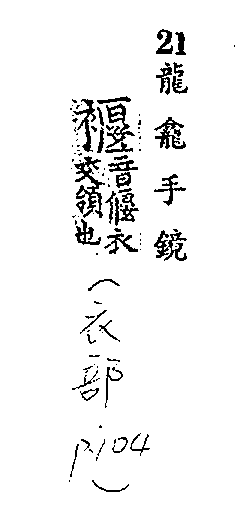 21 龍龕手鏡
褗音偃衣
交領也
(衣部 p.104)